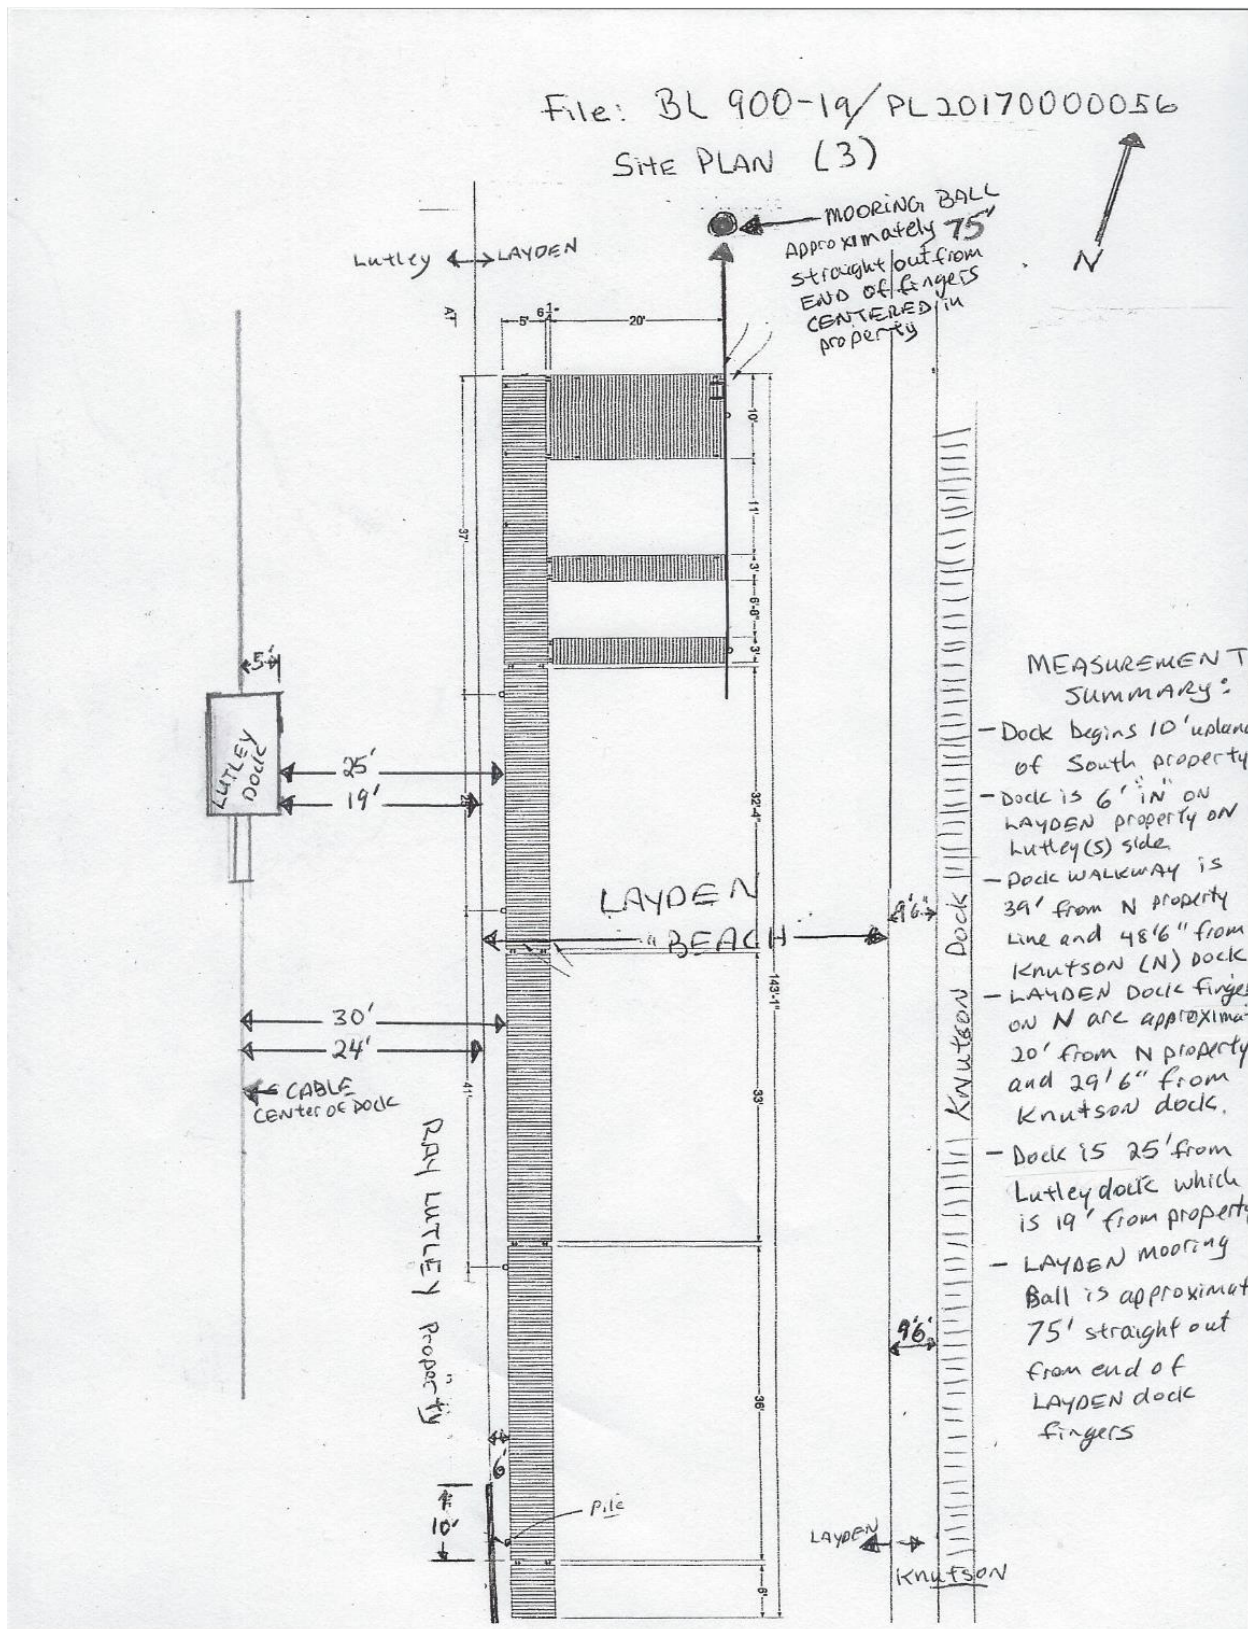 File: BL 900-19/PL20170000056
SITE PLAN (3)
MOORING BALL
Approximately 75'
straight out from
END of fingers
CENTERED in
property
N
Lutley LAYDEN
5'
20'
10'
11'
3'
6'-8"
3'
37'
5'
LUTLEY
DOCK
25'
19'
32'-4"
LAYDEN
BEACH
9'6"
143'-1"
30'
24'
CABLE
CENTER of DOCK
41'
33'
RAY LUTLEY Property
Knutson Dock
36'
9'6"
6'
10'
Pile
6'
LAYDEN
Knutson
MEASUREMENT
SUMMARY:
- Dock begins 10' upland
of South property
- Dock is 6' "IN" ON
LAYDEN property ON
Lutley(s) side.
- Dock WALKWAY is
39' from N property
Line and 48'6" from
Knutson (N) Dock
- LAYDEN Dock fingers
ON N are approximat
20' from N property
and 29'6" from
Knutson dock.
- Dock is 25' from
Lutley dock which
is 19' from property
- LAYDEN mooring
Ball is approximat
75' straight out
from end of
LAYDEN dock
fingers